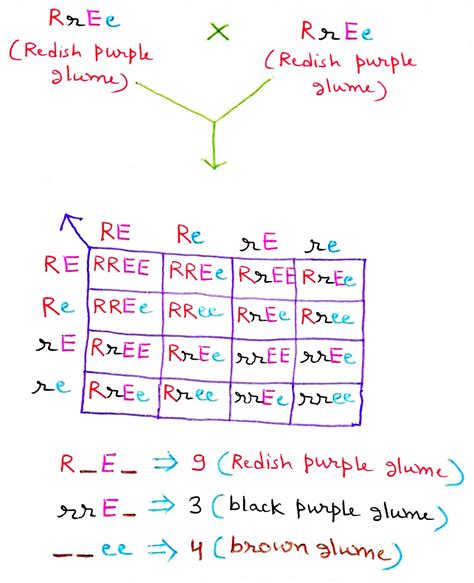 RrEe × RrEe
(Redish purple glume) (Redish purple glume)
RE Re rE re
RE RREE RREe RrEE RrEe
Re RREe RRee RrEe Rree
rE RrEE RrEe rrEE rrEe
re RrEe Rree rrEe rree
R_E_ ⇒ 9 (Redish purple glume)
rrE_ ⇒ 3 (black purple glume)
__ee ⇒ 4 (brown glume)